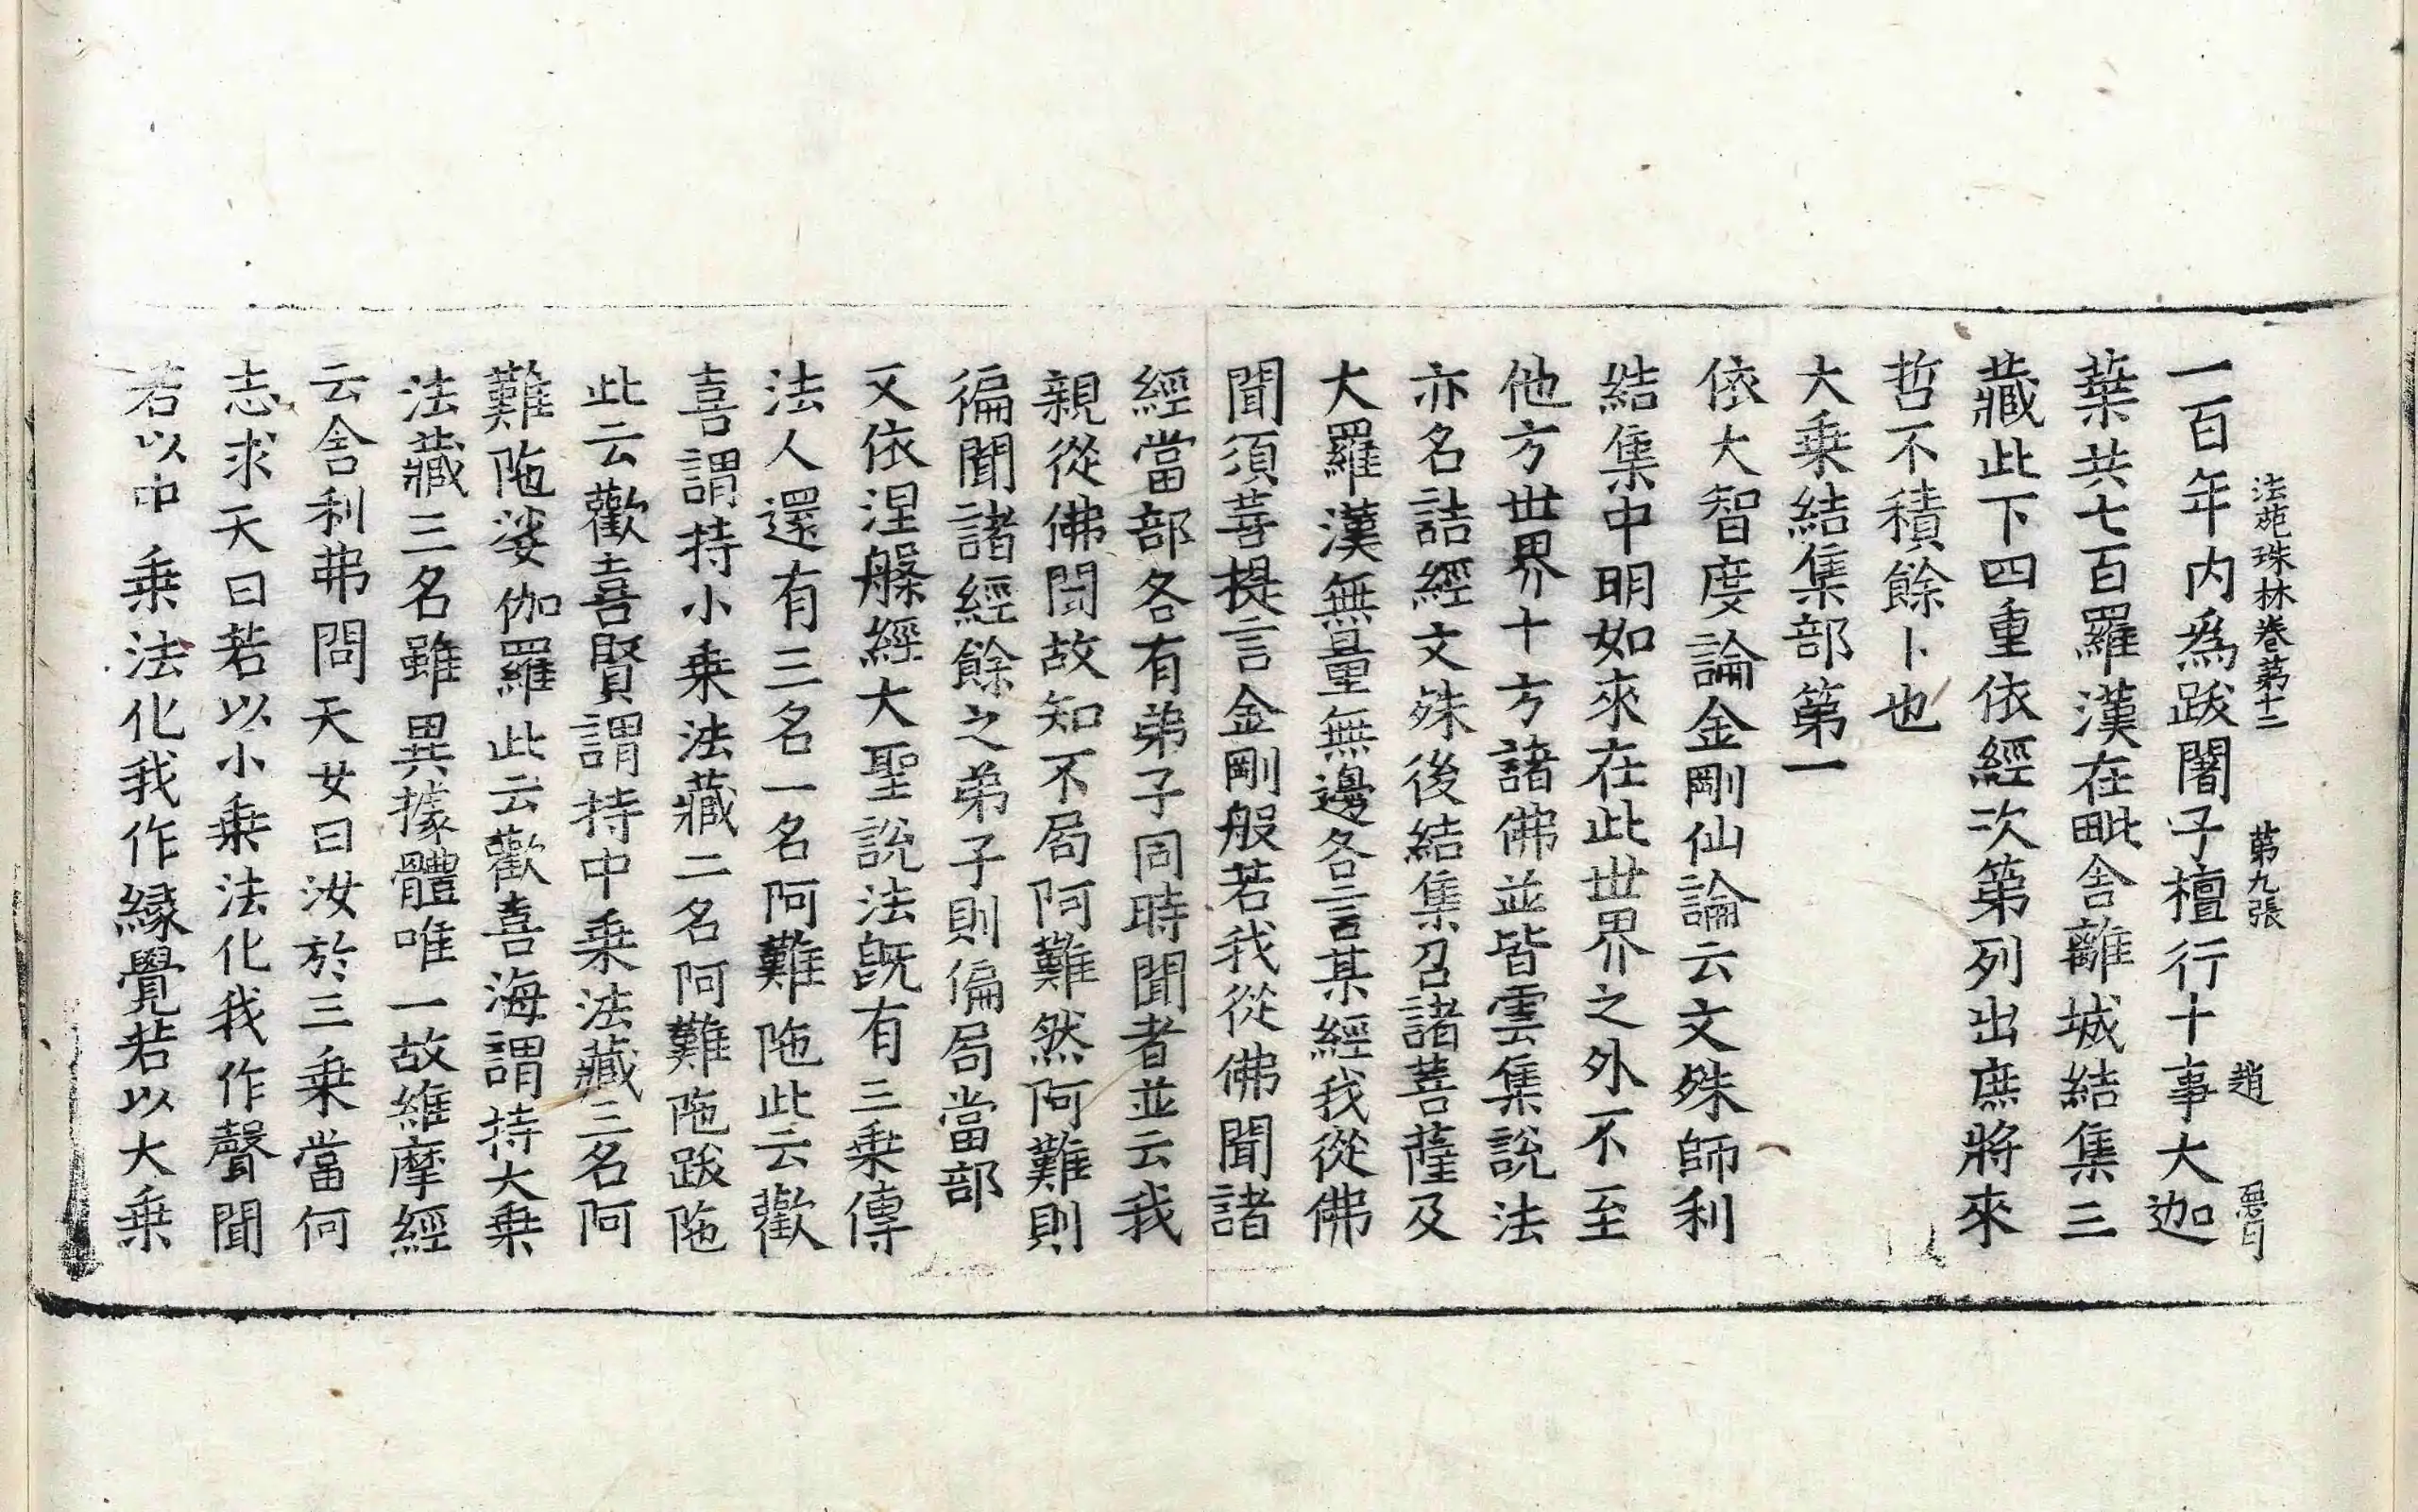 法苑珠林卷第十二 第九張 趙
一百年内爲跋闍子檀行十事大迦
葉共七百羅漢在毗舍離城結集三
藏此下四重依經次第列出庶將來
哲不積餘卜也
大乗結集部第一
依大智度論金剛仙論云文殊師利
結集中明如來在此世界之外不至
他方世界十方諸佛並皆雲集說法
亦名詰經文殊後結集召諸菩薩及
大羅漢無量無邊各言某經我從佛
聞須菩提言金剛般若我從佛聞諸
經當部各有弟子同時聞者並云我
親從佛聞故知不局阿難然阿難則
徧聞諸經餘之弟子則偏局當部
又依涅槃經大聖說法旣有三乗傳
法人還有三名一名阿難陁此云歡
喜謂持小乗法藏二名阿難陁跋陁
此云歡喜賢謂持中乗法藏三名阿
難陁娑伽羅此云歡喜海謂持大乗
法藏三名雖異據體唯一故維摩經
云舍利弗問天女曰汝於三乗當何
志求天曰若以小乗法化我作聲聞
若以中乗法化我作縁覺若以大乗